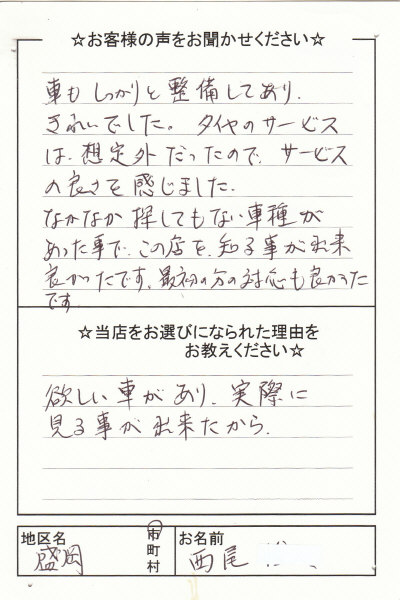 ☆お客様の声をお聞かせください☆
車もしっかりと整備してあり、
きれいでした。タイヤのサービス
は、想定外だったので、サービス
の良さを感じました。
なかなか探してもない車種が
あった事で、この店を、知る事が出来
良かったです。最初の方の対応も良かった
です。
☆当店をお選びになられた理由を
お教えください☆
欲しい車があり、実際に
見る事が出来たから。
地区名
盛岡
市
町
村
お名前
西尾